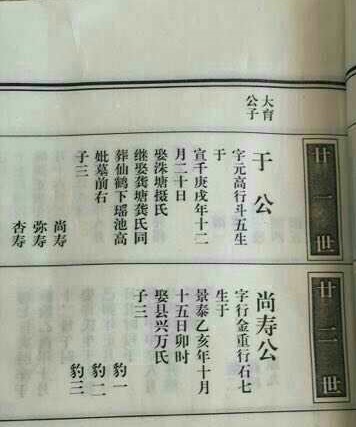 大育
公子
廿一世
于公
字元高行斗五生
于
宣千庚戌年十二
月二十日
娶洙塘摄氏
继娶龚塘龚氏同
葬仙鹤下瑶池高
妣墓前右
子三
尚寿
弥寿
杏寿
廿二世
尚寿公
字行金重行石七
生于
景泰乙亥年十月
十五日卯时
娶县兴万氏
子三
豹一
豹二
豹三